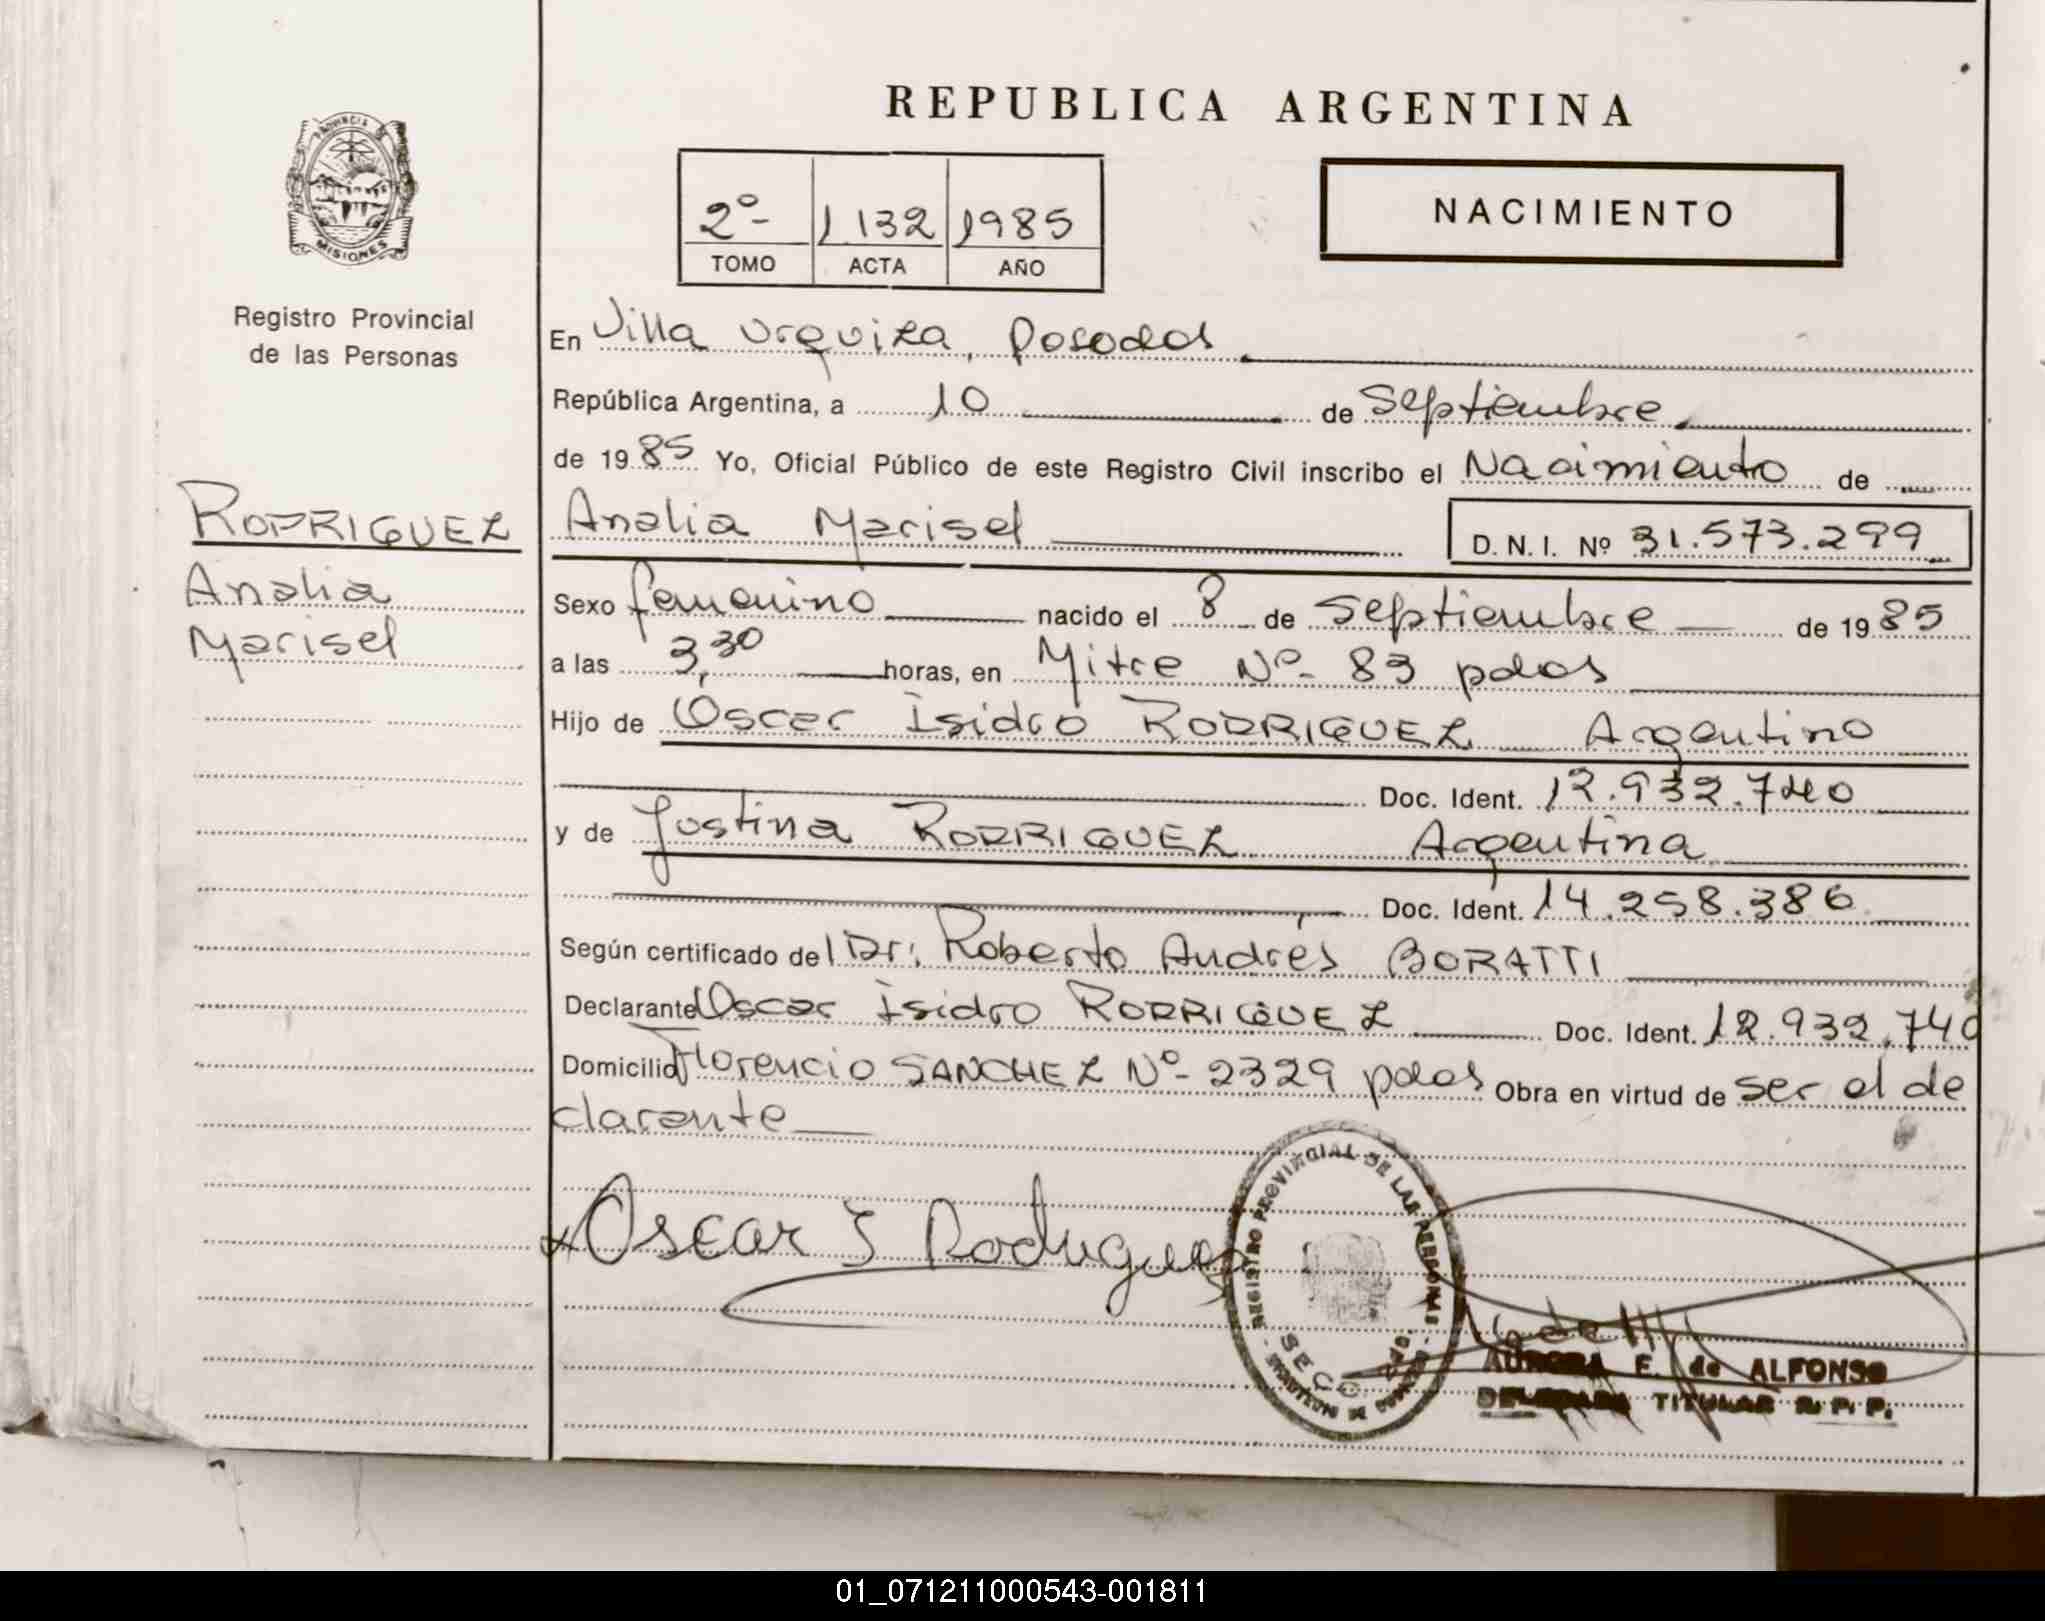 REPUBLICA ARGENTINA
PROVINCIA DE
MISIONES
Registro Provincial
de las Personas
RODRIGUEZ
Analia
Marisel
2º- 1132 1985
TOMO ACTA AÑO
NACIMIENTO
En Villa Urquiza, Posadas
República Argentina, a 10 de Septiembre
de 1985 Yo, Oficial Público de este Registro Civil inscribo el Nacimiento de
Analia Marisel D. N. I. Nº 31.573.299
Sexo femenino nacido el 8 de Septiembre de 1985
a las 3,30 horas, en Mitre Nº- 83 pdas
Hijo de Oscar Isidro RODRIGUEZ Argentino
Doc. Ident. 12.932.740
y de Justina RODRIGUEZ Argentina
Doc. Ident. 14.258.386
Según certificado del Dr: Roberto Andrés BORATTI
Declarante Oscar Isidro RODRIGUEZ Doc. Ident. 12.932.740
Domicilio Florencio SANCHEZ Nº- 2329 pdas Obra en virtud de ser el de
clarante
Oscar I Rodriguez
REGISTRO PROVINCIAL DE LAS PERSONAS
SECC.
AURORA E. de ALFONSO
DELEGADA TITULAR R. P. P.
01_071211000543-001811